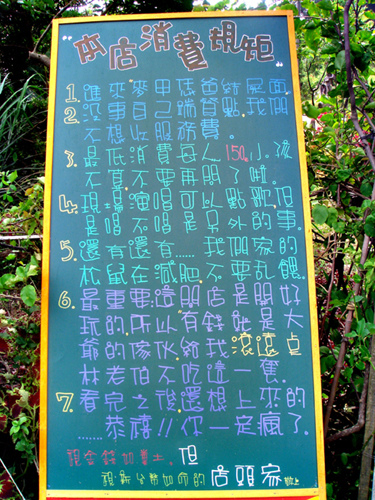 "本店消費規矩"
1. 進來麥甲 結屎面
2. 沒事自己端 點,我們
不想收服務費。
3. 最低消費每人150,小孩
不算,不要再問了啦.
4. 現場演唱可以點歌,但
是唱不唱是另外的事.
5. 還有還有......我們家的
松鼠在減肥,不要乱餵.
6. 最重要,這間店是開好
玩的,所以"有錢就是大
爺"的傢伙給我滾遠点
林老伯不吃這一套.
7. 看完之後還想上來的
......恭禧!!你一定瘋了.
視金錢如糞土。但
視新台幣如命的店頭家 敬上